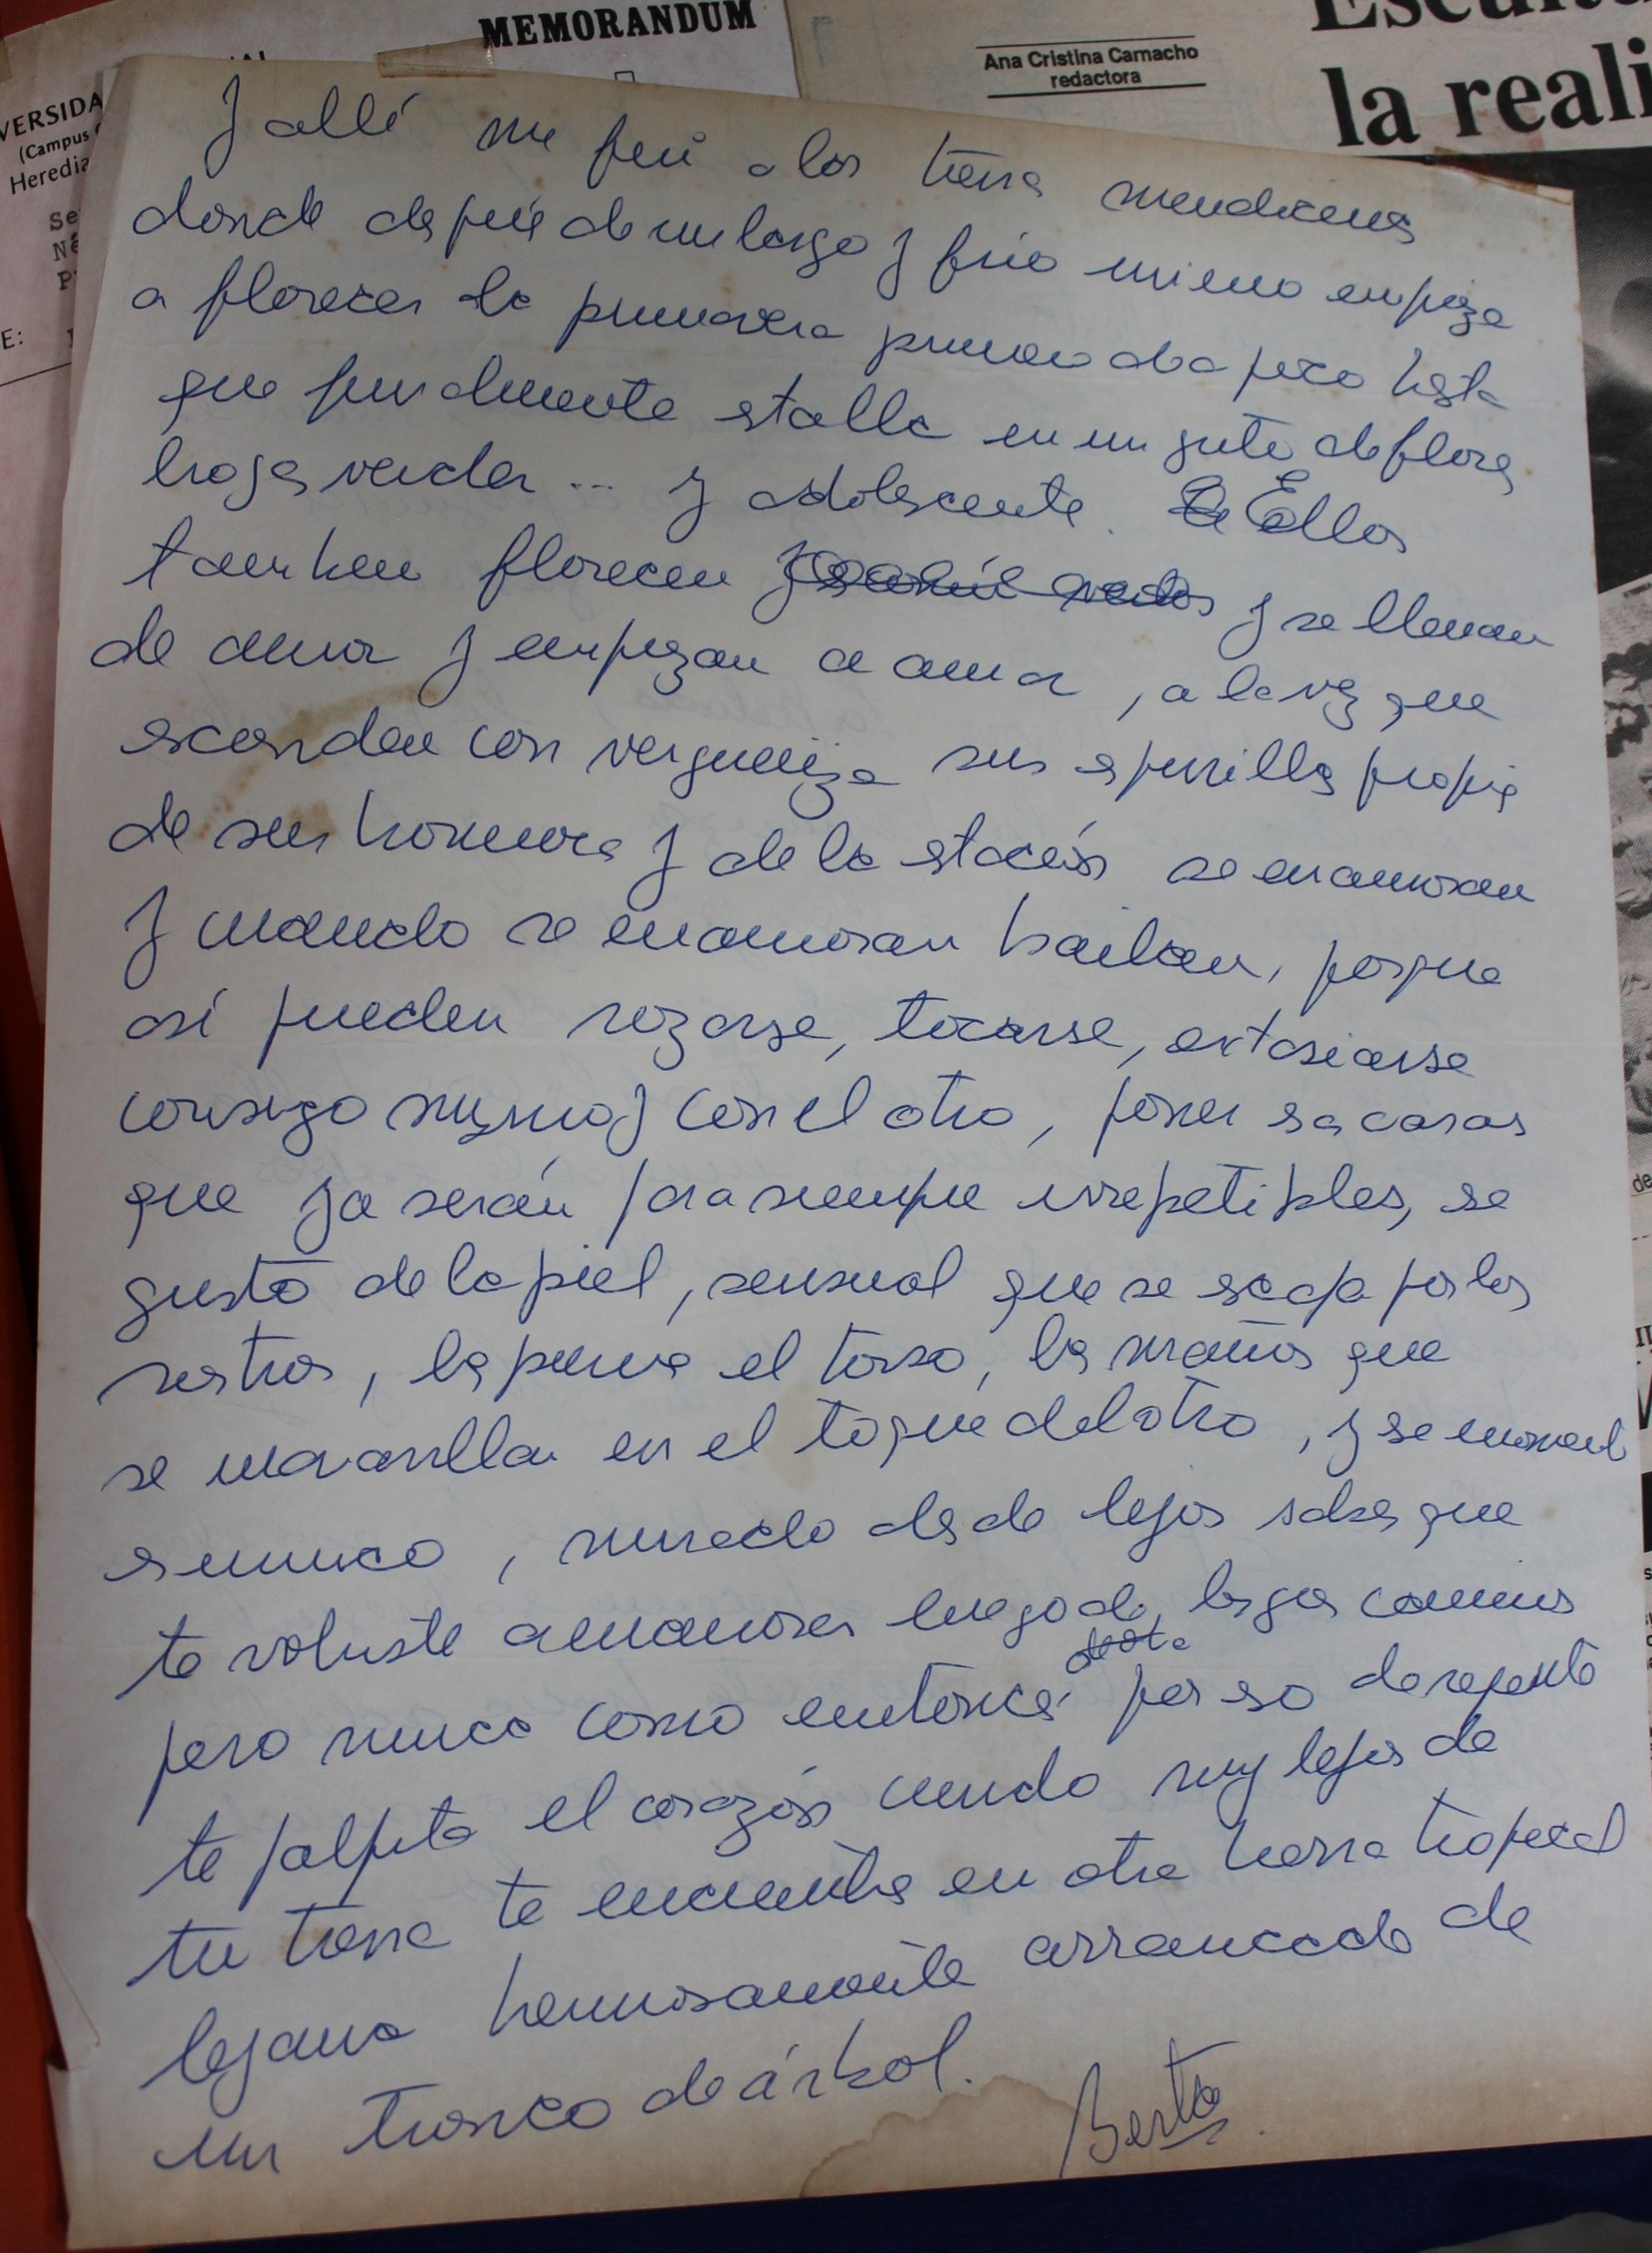 MEMORANDUM
Ana Cristina Camacho
redactora
Escultu
la reali
VERSIDA
(Campus
Heredia
Se
Né
P
E:
Y allí me fui a las tierras
donde después de un largo y frío invierno empieza
a florecer la primavera primero de a poco hasta
que finalmente estalla en un grito de flores
hojas verdes ... y adolescentes. Ellos
tambien florecen y se llenan
de amor y empiezan a amar, a la vez que
esconden con verguenza sus espinillas propias
de sus hormonas y de la estación se enamoran
y cuando se enamoran bailan, porque
así pueden rozarse, tocarse, extasiarse
consigo mismo y con el otro, poner esa caras
que ya serán para siempre irrepetibles, ese
gusto de la piel, sensual que se escapa por los
rostros, las piernas el torso, las manos que
se maravillan en el toque del otro, y ese momento
es unico, mirado desde lejos sabes que
te volviste a enamorar luego de largos caminos
pero nunca como entonces por eso de repente
te palpita el corazón cuando muy lejos de
tu tierra te encuentras en otra tierra tropical
lejana hermosamente arrancado de
un tronco de árbol.
Berta